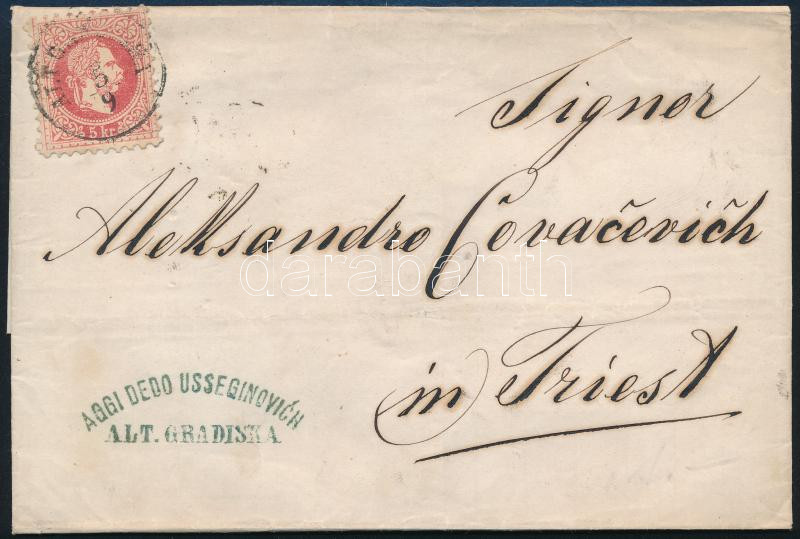 5 kr
5
9
Signor
Aleksandro Čovačevičh
darabanth
in Triest
AGGI DEDO USSEGINOVIĆH
ALT. GRADISKA